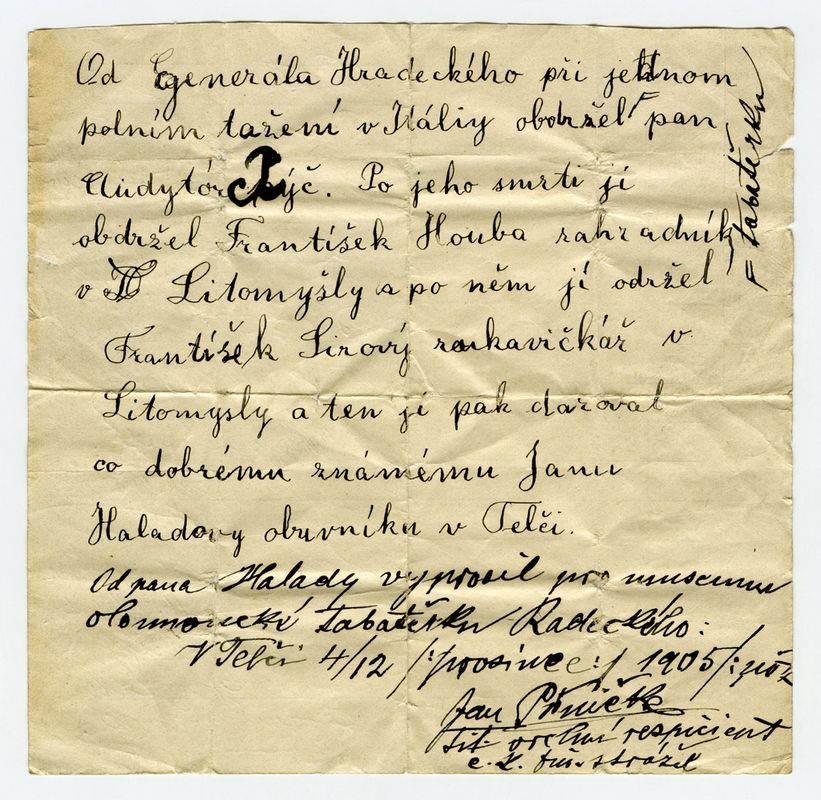 Od Generála Hradeckého při jednom
polním tažení v Itáliy obdržel pan
Audytór Rýč. Po jeho smrti ji
obdržel František Houba zahradník
v Litomyšly a po něm jí održel
František Sirový rukavičkář v
Litomysly a ten ji pak daroval
co dobrému známému Janu
Haladovy obuvníku v Telči.
Od pana Halady vyprosil pro museum
olomoucké tabatěrku Radeckého:
V Telči 4/12 /:prosince:/ 1905
Jan
tit. vrchní respicient
c. k. fin. stráže
F tabatěrku